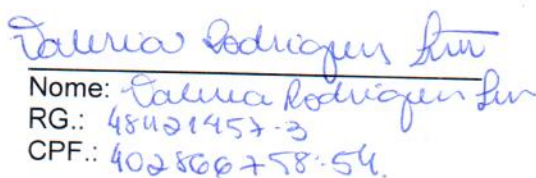 Valeria Rodrigues
Nome: Valeria Rodrigues
RG.: 48421457-3
CPF.: 402866758-54.